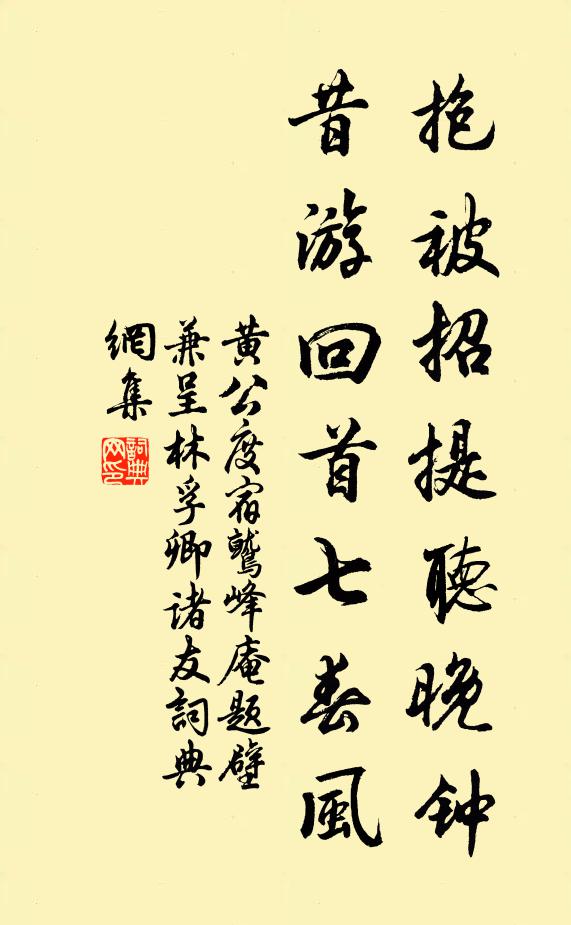 抱被招提聽晚钟
昔游回首七春風
黄公度宿鷲峰庵題壁
兼呈林孚卿诸友詞典
網集
詞典網印